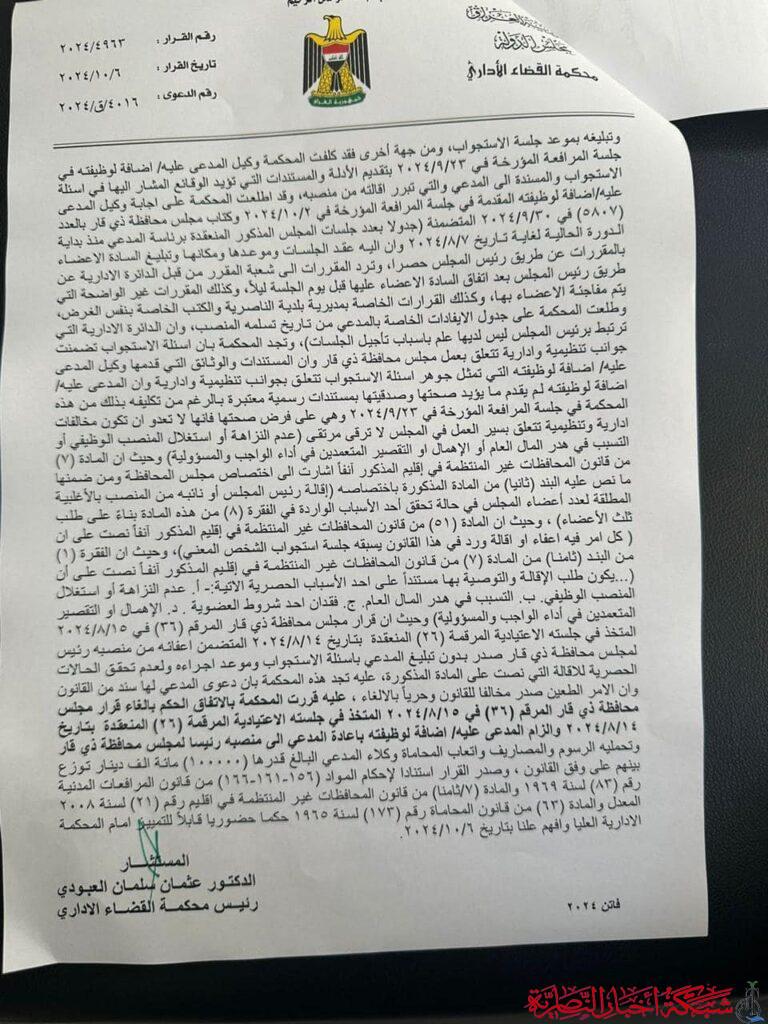 محكمة القضاء الأداري
رقم القرار : ٢٠٢٤/٤٩٦٣
تاريخ القرار : ٢٠٢٤/١٠/٦
رقم الدعوى : ٤٠١٦/ق/٢٠٢٤
جمهورية العراق
وتبليغه بموعد جلسة الاستجواب، ومن جهة أخرى فقد كلفت المحكمة وكيل المدعى عليه/ اضافة لوظيفته في
جلسة المرافعة المؤرخة في ٢٠٢٤/٩/٢٣ بتقديم الأدلة والمستندات التي تؤيد الوقائع المشار اليها في اسئلة
الاستجواب والمسندة الى المدعي والتي تبرر اقالته من منصبه، وقد اطلعت المحكمة على اجابة وكيل المدعى
عليه/اضافة لوظيفته المقدمة في جلسة المرافعة المؤرخة في ٢٠٢٤/١٠/٢ وكتاب مجلس محافظة ذي قار بالعدد
(٥٨٠٧) في ٢٠٢٤/٩/٣٠ المتضمنة (جدولا بعدد جلسات المجلس المذكور المنعقدة برئاسة المدعي منذ بداية
الدورة الحالية لغاية تاريخ ٢٠٢٤/٨/٧ وان اليه عقد الجلسات وموعدها ومكانها وتبليغ السادة الاعضاء
بالمقررات عن طريق رئيس المجلس حصرا، وترد المقررات الى شعبة المقرر من قبل الدائرة الادارية عن
طريق رئيس المجلس بعد اتفاق السادة الاعضاء عليها قبل يوم الجلسة ليلاً، وكذلك المقررات غير الواضحة التي
يتم مفاجئة الاعضاء بها، وكذلك القرارات الخاصة بمديرية بلدية الناصرية والكتب الخاصة بنفس الغرض،
وطلعت المحكمة على جدول الايفادات الخاصة بالمدعي من تاريخ تسلمه المنصب، وان الدائرة الادارية التي
ترتبط برئيس المجلس ليس لديها علم باسباب تأجيل الجلسات)، وتجد المحكمة بان اسئلة الاستجواب تضمنت
جوانب تنظيمية وادارية تتعلق بعمل مجلس محافظة ذي قار وان المستندات والوثائق التي قدمها وكيل المدعى
عليه/ اضافة لوظيفته التي تمثل جوهر اسئلة الاستجواب تتعلق بجوانب تنظيمية وادارية وان المدعى عليه/
اضافة لوظيفته لم يقدم ما يؤيد صحتها وصدقيتها بمستندات رسمية معتبرة بالرغم من تكليفه بذلك من هذه
المحكمة في جلسة المرافعة المؤرخة في ٢٠٢٤/٩/٢٣ وهي على فرض صحتها فانها لا تعدو ان تكون مخالفات
ادارية وتنظيمية تتعلق بسير العمل في المجلس لا ترقى مرتقى (عدم النزاهة أو استغلال المنصب الوظيفي أو
التسبب في هدر المال العام أو الإهمال او التقصير المتعمدين في أداء الواجب والمسؤولية) وحيث ان المادة (٧)
من قانون المحافظات غير المنتظمة في إقليم المذكور آنفاً اشارت الى اختصاص مجلس المحافظة ومن ضمنها
ما نص عليه البند (ثانيا) من المادة المذكورة باختصاصه (إقالة رئيس المجلس أو نائبه من المنصب بالأغلبية
المطلقة لعدد أعضاء المجلس في حالة تحقق أحد الأسباب الواردة في الفقرة (٨) من هذه المادة بناءً على طلب
ثلث الأعضاء) ، وحيث ان المادة (٥١) من قانون المحافظات غير المنتظمة في إقليم المذكور آنفاً نصت على ان
( كل امر فيه اعفاء او اقالة ورد في هذا القانون يسبقه جلسة استجواب الشخص المعني)، وحيث ان الفقرة (١)
من البند (ثامنا) من المادة (٧) من قانون المحافظات غير المنتظمة في إقليم المذكور آنفاً نصت على أن
(...يكون طلب الإقالة والتوصية بها مستنداً على احد الأسباب الحصرية الاتية:- أ. عدم النزاهة أو استغلال
المنصب الوظيفي. ب. التسبب في هدر المال العام. ج. فقدان احد شروط العضوية . د. الإهمال او التقصير
المتعمدين في أداء الواجب والمسؤولية) وحيث ان قرار مجلس محافظة ذي قار المرقم (٣٦) في ٢٠٢٤/٨/١٥
المتخذ في جلسته الاعتيادية المرقمة (٢٦) المنعقدة بتاريخ ٢٠٢٤/٨/١٤ المتضمن اعفائه من منصبه رئيس
لمجلس محافظة ذي قار صدر بدون تبليغ المدعي باسئلة الاستجواب وموعد اجراءه ولعدم تحقق الحالات
الحصرية للاقالة التي نصت على المادة المذكورة، عليه تجد هذه المحكمة بان دعوى المدعي لها سند من القانون
وان الامر الطعين صدر مخالفا للقانون وحرياً بالالغاء ، عليه قررت المحكمة بالاتفاق الحكم بالغاء قرار مجلس
محافظة ذي قار المرقم (٣٦) في ٢٠٢٤/٨/١٥ المتخذ في جلسته الاعتيادية المرقمة (٢٦) المنعقدة بتاريخ
٢٠٢٤/٨/١٤ والزام المدعى عليه/ اضافة لوظيفته باعادة المدعي الى منصبه رئيسا لمجلس محافظة ذي قار
وتحميله الرسوم والمصاريف واتعاب المحاماة وكلاء المدعي البالغ قدرها (١٠٠٠٠٠) مائة الف دينار توزع
بينهم على وفق القانون ، وصدر القرار استنادا لإحكام المواد (١٥٦-١٦١-١٦٦) من قانون المرافعات المدنية
رقم (٨٣) لسنة ١٩٦٩ والمادة (٧/ثامنا) من قانون المحافظات غير المنتظمة في اقليم رقم (٢١) لسنة ٢٠٠٨
المعدل والمادة (٦٣) من قانون المحاماة رقم (١٧٣) لسنة ١٩٦٥ حكما حضوريا قابلاً للتمييز امام المحكمة
الادارية العليا وافهم علنا بتاريخ ٢٠٢٤/١٠/٦.
المستشار
الدكتور عثمان سلمان العبودي
رئيس محكمة القضاء الاداري
فاتن ٢٠٢٤
شبكة اخبار الناصرية